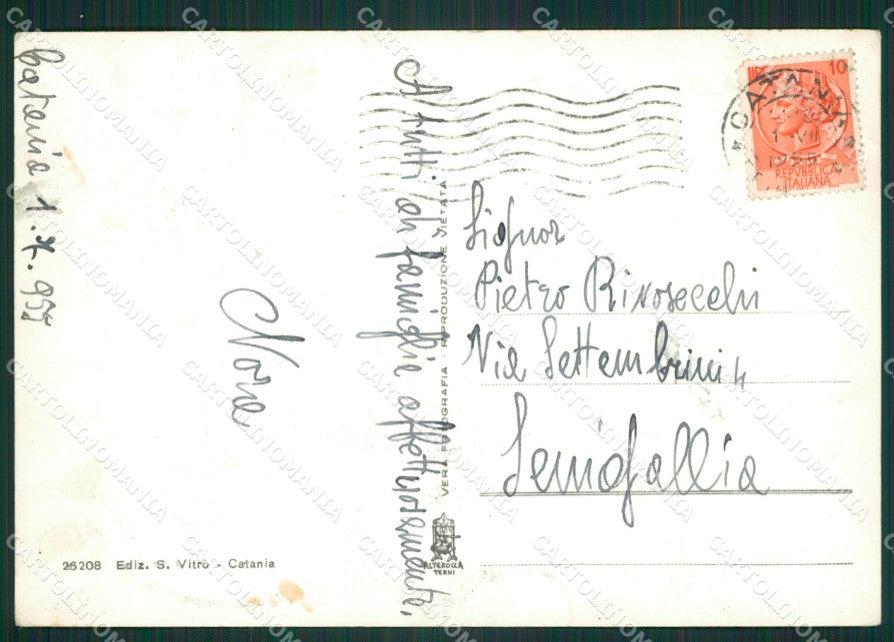 Catania 1.7.955
A tutti di famiglia affettuosamente,
Nora
VERA FOTOGRAFIA - RIPRODUZIONE VIETATA
LIRE 10
CATANIA
1 VII
1955
REPVBBLICA
ITALIANA
Signor
Pietro Rivosecchi
Via Settembrini 4
Senigallia
ALTEROCCA
TERNI
25208 Ediz. S. Vitro - Catania
CARTOLINOMANIA